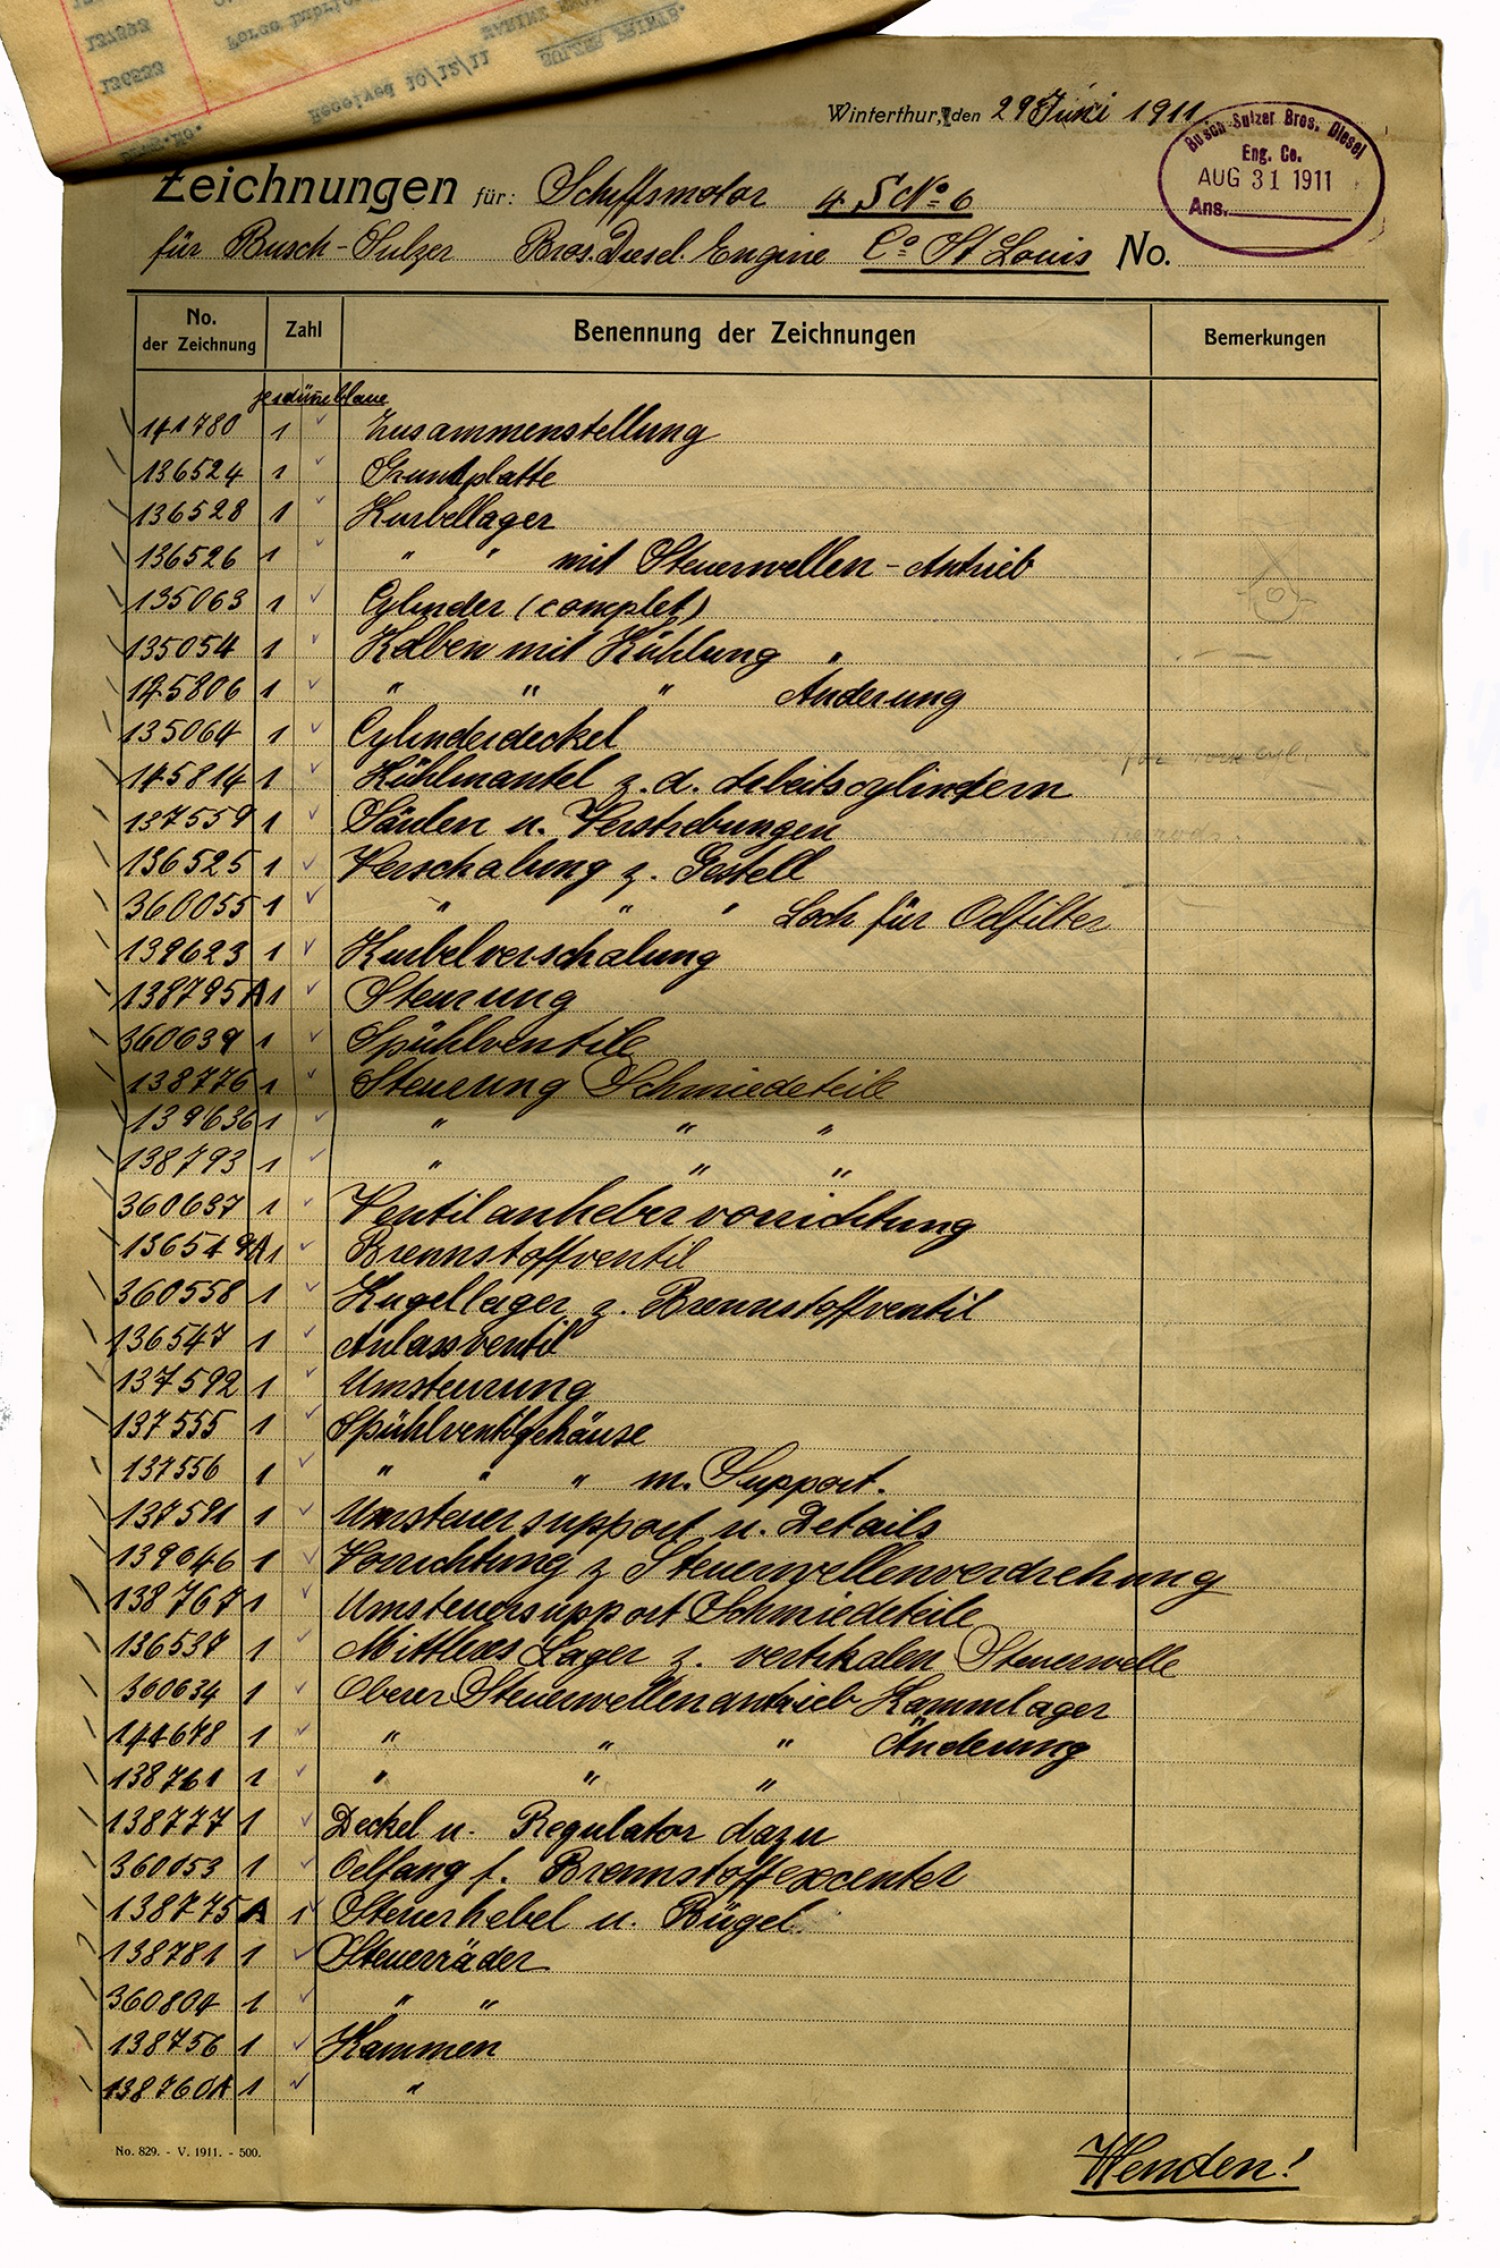 Received 10/12/11
SULZER PRINTS.
136533
Winterthur, den 29 Juni 1911
Busch-Sulzer Bros. Diesel
Eng. Co.
AUG 31 1911
Ans.
Zeichnungen für: Schiffsmotor 4 S No 6
für Busch-Sulzer Bros. Diesel. Engine Co St Louis No.
No. der Zeichnung Zahl Benennung der Zeichnungen Bemerkungen
je dünne blaue
141780 1 Zusammenstellung
136524 1 Grundplatte
136528 1 Kurbellager
136526 1 " " mit Steuerwellen-Antrieb
135063 1 Cylinder (complet)
135054 1 Kolben mit Kühlung "
145806 1 " " " Änderung
135064 1 Cylinderdeckel
145814 1 Kühlmantel z. d. Arbeitscylindern
137559 1 Säulen u. Verstrebungen
136525 1 Verschalung z. Gestell
360055 1 " " " Loch für Oelfilter
139623 1 Kurbelverschalung
138795A 1 Steurung
360639 1 Spühlventile
138776 1 Steuerung Schmiedeteile
139636 1 " " "
138793 1 " " "
360637 1 Ventilanhebervorrichtung
136549A 1 Brennstoffventil
360558 1 Kugellager z. Brennstoffventil
136547 1 Anlassventil
137592 1 Umsteurung
137555 1 Spühlventilgehäuse
137556 1 " " " m. Support.
137591 1 Umsteuersupport u. Details
139646 1 Vorrichtung z Steuerwellenverdrehung
138767 1 Umsteuersupport Schmiedeteile
136537 1 Mittleres Lager z. vertikalen Steuerwelle
360634 1 Oberer Steuerwellenantrieb Kammlager
144678 1 " " " Änderung
138761 1 " " "
138777 1 Deckel u. Regulator dazu
360053 1 Oelfang f. Brennstoffexcenter
138775A 1 Steuerhebel u. Bügel
138781 1 Steuerräder
360804 1 " "
138756 1 Kammen
138760A 1 "
No. 829. - V. 1911. - 500.
Wenden!